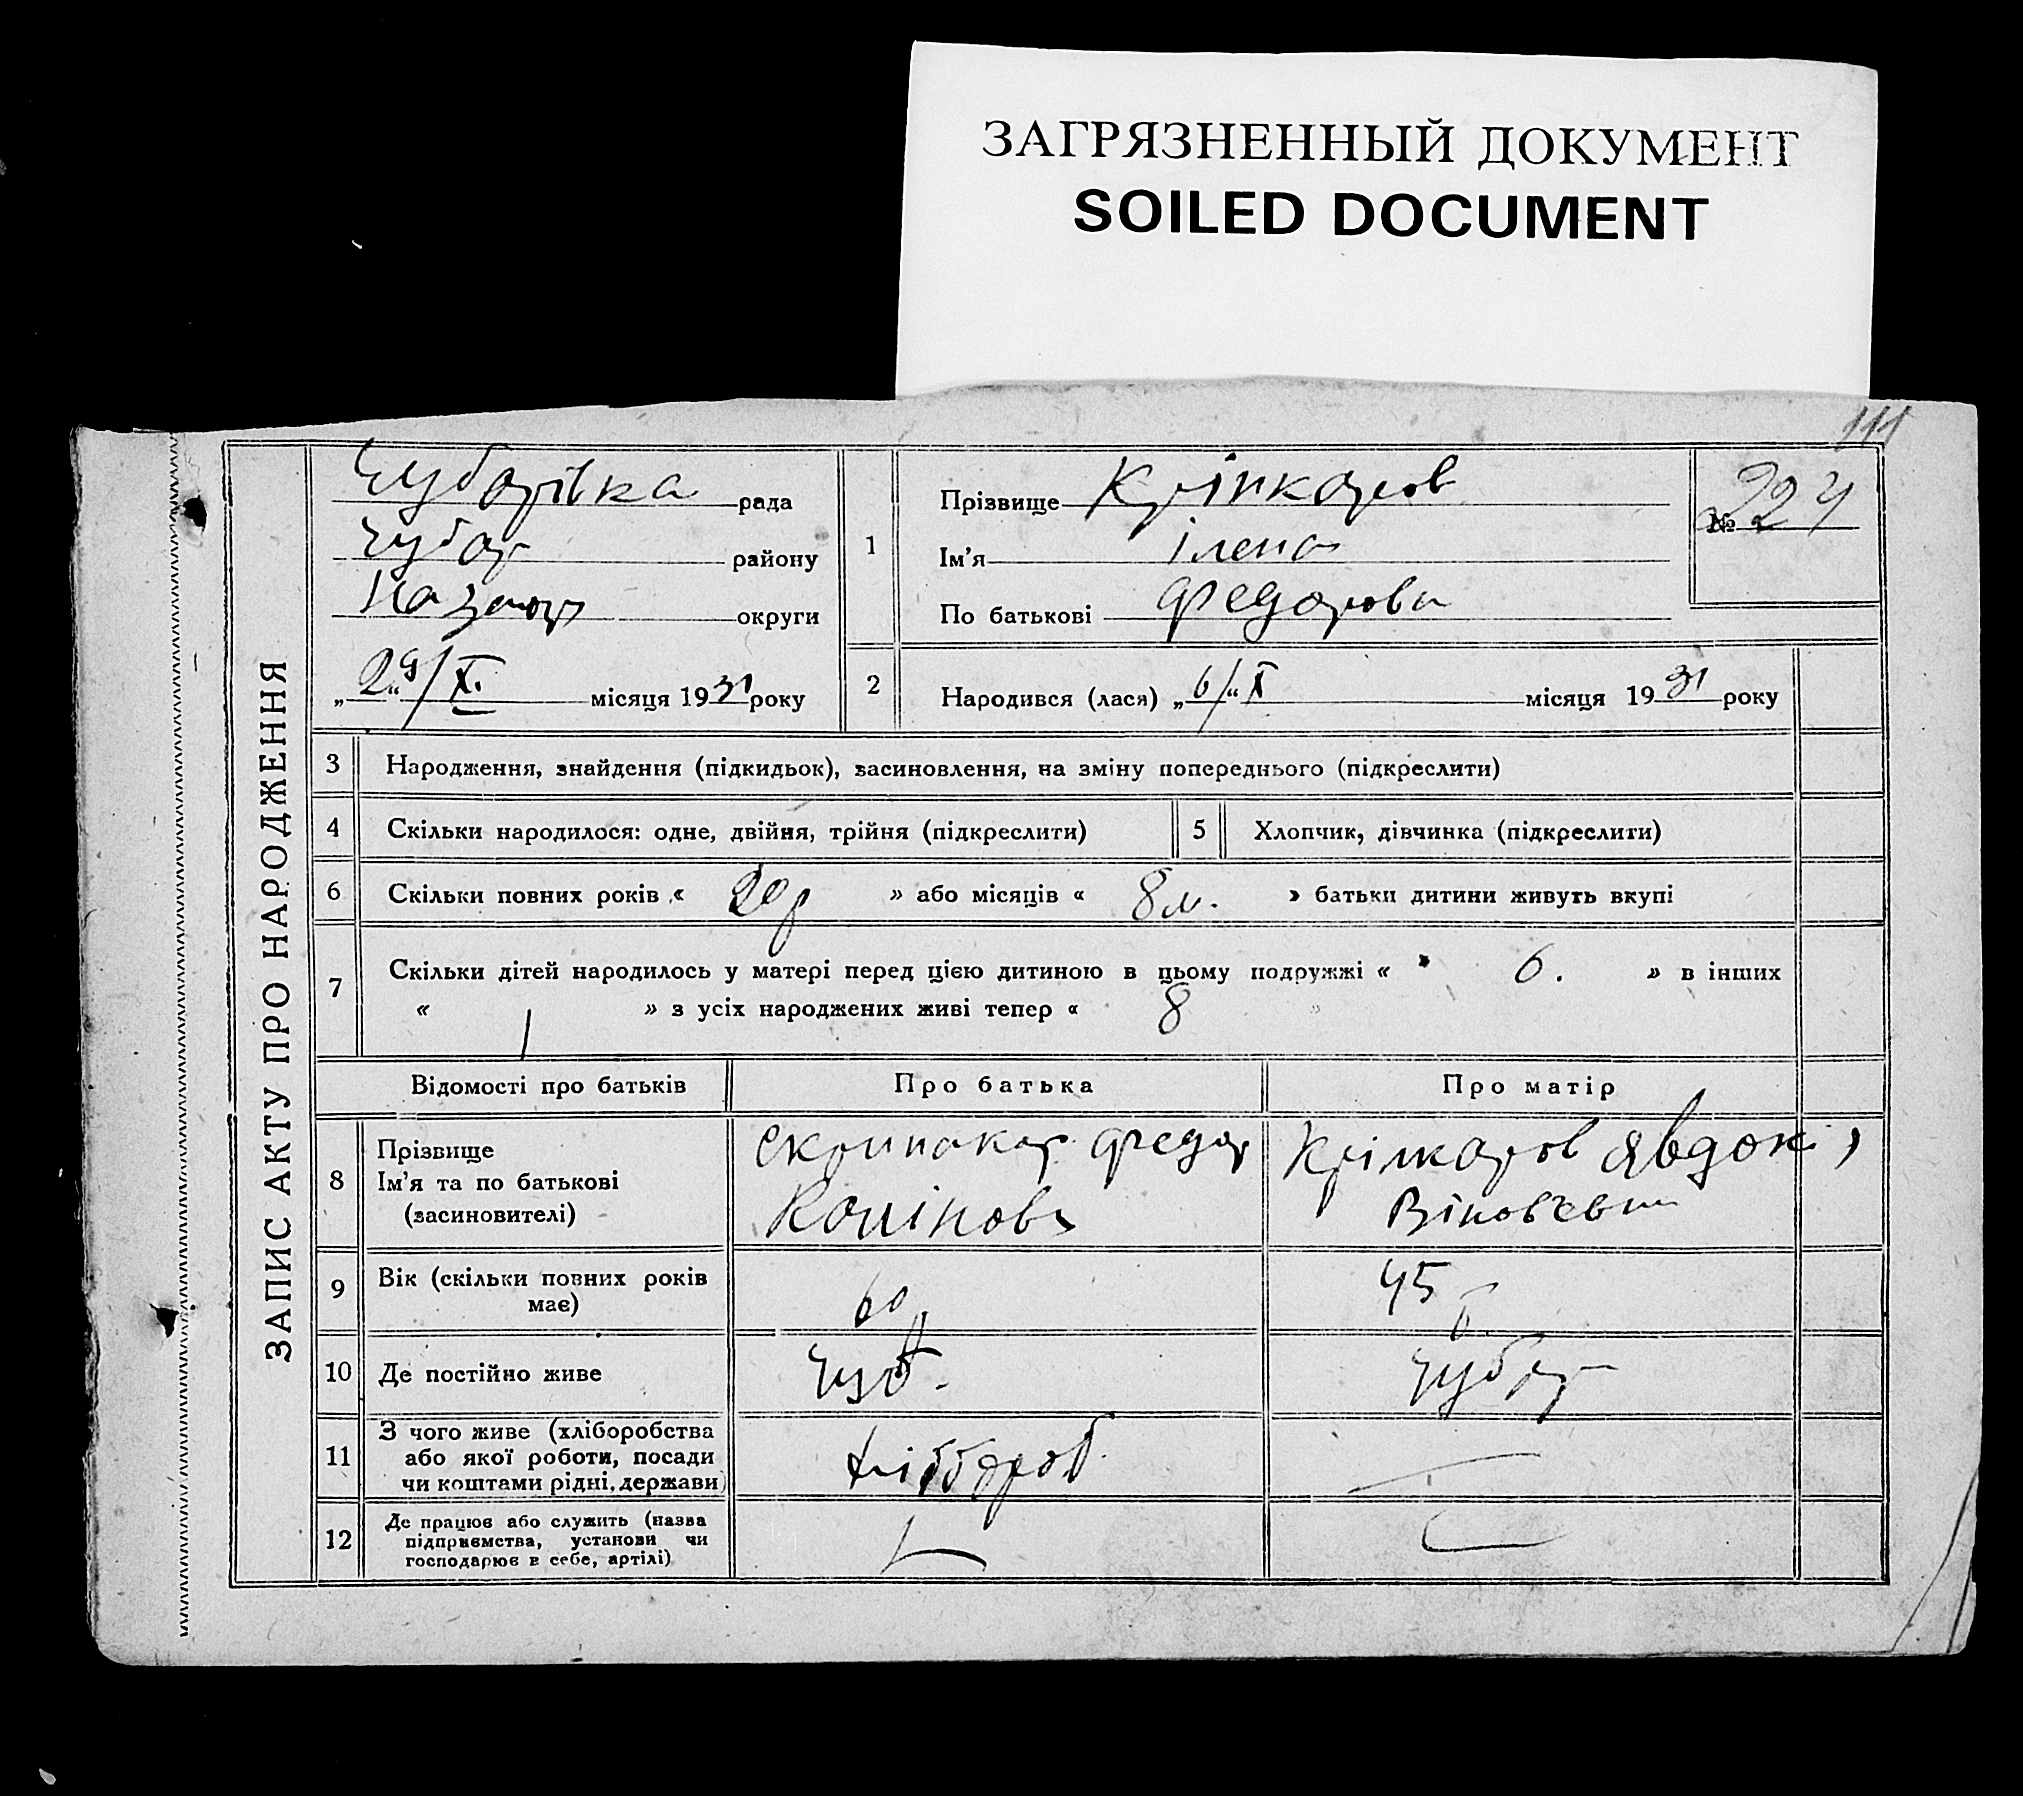 ЗАГРЯЗНЕННЫЙ ДОКУМЕНТ
SOILED DOCUMENT
111
ЗАПИС АКТУ ПРО НАРОДЖЕННЯ
Чубарівка рада
Чубар району
округи
„29/“ X. місяця 1931 року
1
Прізвище
Ім’я ілена
По батькові Федорова
№ 224
2
Народився (лася) „6/“ X місяця 1931 року
3 Народження, знайдення (підкидьок), засиновлення, на зміну попереднього (підкреслити)
4 Скільки народилося: одне, двійня, трійня (підкреслити) 5 Хлопчик, дівчинка (підкреслити)
6 Скільки повних років « 20 р » або місяців « 8 м. » батьки дитини живуть вкупі
7 Скільки дітей народилось у матері перед цією дитиною в цьому подружжі « 6. » в інших
« 1 » з усіх народжених живі тепер « 8 »
Відомості про батьків Про батька Про матір
8 Прізвище
Ім’я та по батькові
(засиновителі)
Федор
явдокія
9 Вік (скільки повних років має) 60 45
10 Де постійно живе Чуб. Чубар
11 З чого живе (хліборобства
або якої роботи, посади
чи коштами рідні, держави)
хлібороб
12 Де працює або служить (назва
підприємства, установи чи
господарює в себе, артілі)